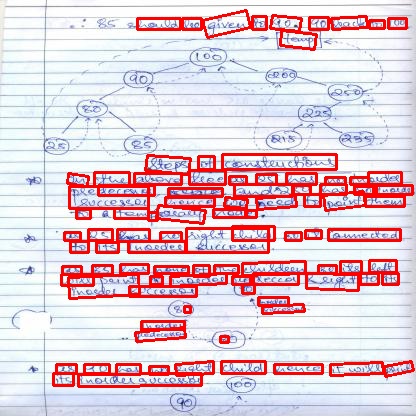 ∴ 85 should be given to 90. 90 back to 100
temp
100
90 200
80 250
225
25 85 215 235
Steps of constructions
In the above tree as 25 has no inorder
predecessor
successor hence we need to point them
to a temporary node.
as 25 has no right child so is connected
to its inorder successor
as 85 has none of the children so its left
will point to inorder predecessor & right to its
inorder successor
inorder successor
inorder predecessor
as 90 has no right child hence I will point
its inorder successor
100
90